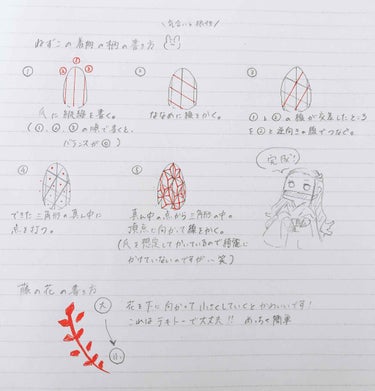 \気合いと根性/
ねずこの着物の柄の書き方
①
① ② ③
爪に縦線を書く。
(①、②、③の順で書くと、
バランスが◎)
②
ななめに線をかく。
③
①と②の線が交差したところ
を②と逆向きの線でつなぐ。
④
できた三角形の真ん中に
点を打つ。
⑤
真ん中の点から三角形の中の
頂点に向かって線をかく。
(爪を想定してかいているので綺麗に
かけていないのですが…笑)
完成!
藤の花の書き方
大
小
花を下に向かって小さくしていくとかわいいです!
これはテキトーで大丈夫!! めっちゃ簡単